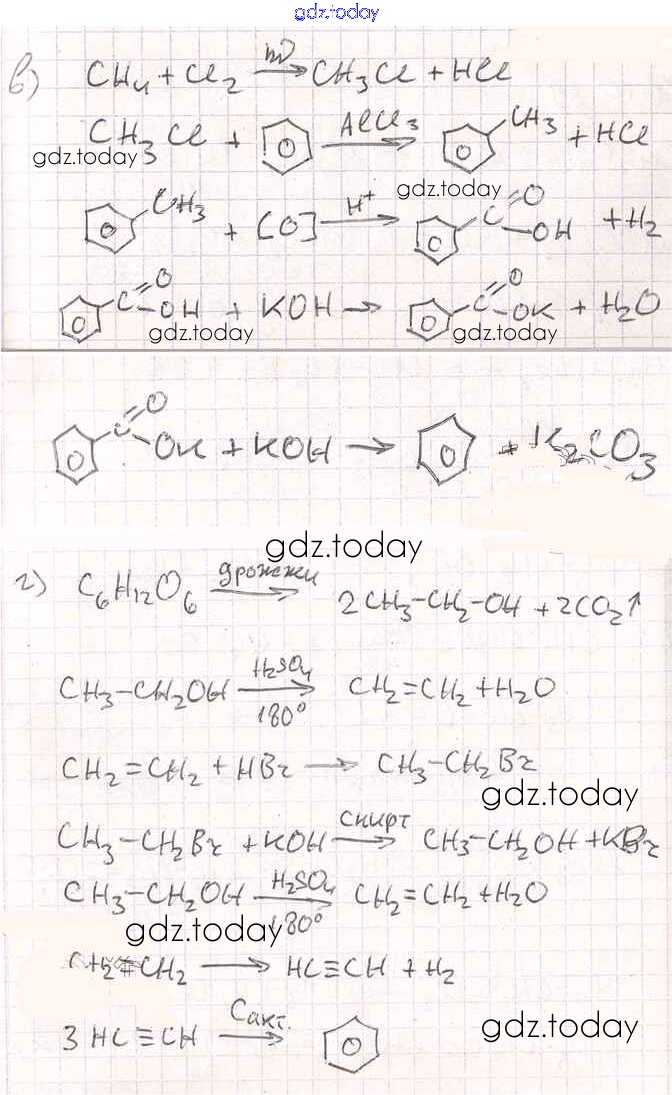 gdz.today
в) CH₄ + Cl₂ →(hν) CH₃Cl + HCl
CH₃Cl + ⌬ →(AlCl₃) ⌬–CH₃ + HCl
gdz.today
gdz.today
⌬–CH₃ + [O] →(H⁺) ⌬–C(=O)–OH + H₂
⌬–C(=O)–OH + KOH → ⌬–C(=O)–OK + H₂O
gdz.today gdz.today
⌬–C(=O)–OK + KOH → ⌬ + K₂CO₃
gdz.today
г) C₆H₁₂O₆ →(дрожжи) 2CH₃–CH₂–OH + 2CO₂↑
CH₃–CH₂OH →(H₂SO₄, 180°) CH₂=CH₂ + H₂O
CH₂=CH₂ + HBr → CH₃–CH₂Br
gdz.today
CH₃–CH₂Br + KOH →(спирт) CH₃–CH₂OH + KBr
CH₃–CH₂OH →(H₂SO₄, 180°) CH₂=CH₂ + H₂O
gdz.today
CH₂=CH₂ → HC≡CH + H₂
3HC≡CH →(Cакт.) ⌬
gdz.today